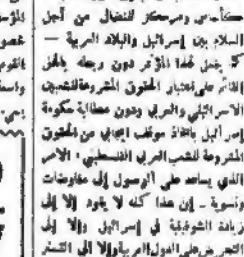 كأساس ومرتكز للنضال من أجل
السلام بين إسرائيل والبلاد العربية —
المؤتمر دون ربطه بالحل
القائم على احترام الحقوق المشروعة للشعبين
الاسرائيلي والعربي ودون مطالبة حكومة
إسرائيل باتخاذ موقف ايجابي من الحقوق
المشروعة للشعب العربي الفلسطيني، الامر
الذي يساعد على الوصول إلى مفاوضات
وتسوية - إن هذا كله لا يقود إلا إلى
زيادة الشوفينية في إسرائيل وإلا إلى
التحريض على الدول العربية وإلا الى التستر